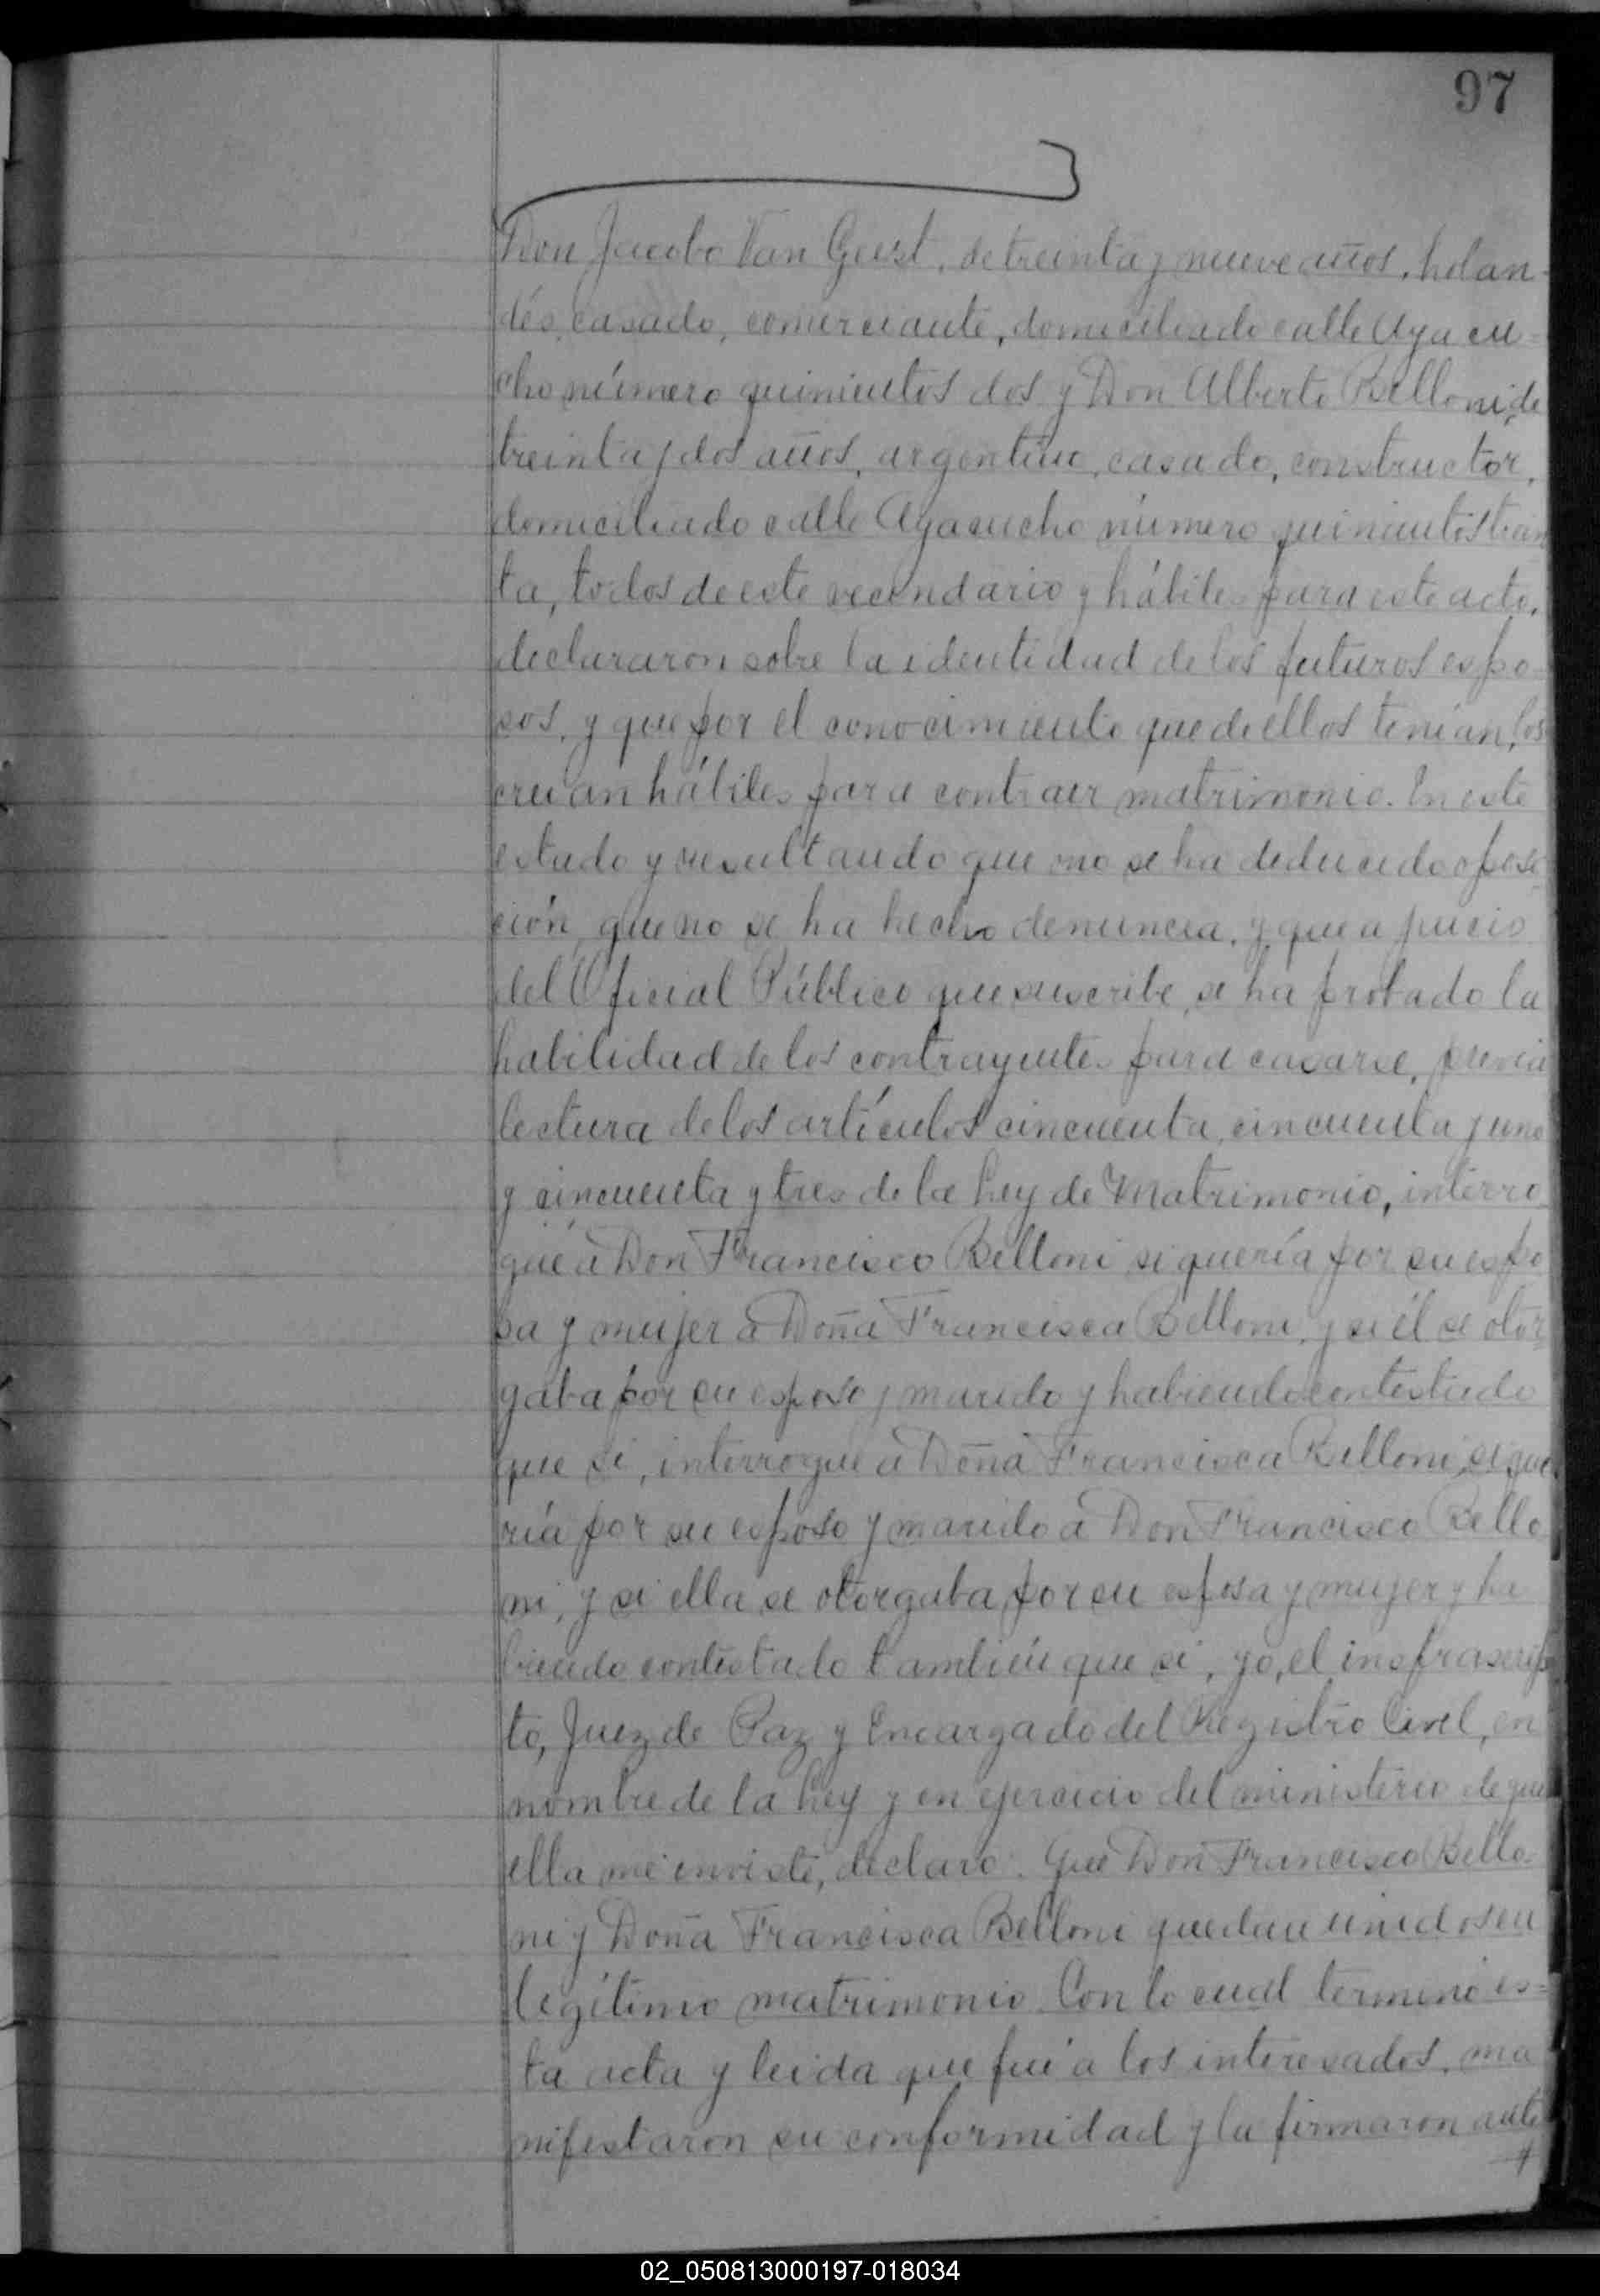 97
Don Jacobo Van Geest, de treinta y nueve años, holan-
dés, casado, comerciante, domiciliado calle Ayacu=
cho número quinientos dos y Don Alberto Belloni, de
treinta y dos años, argentino, casado, constructor,
domiciliado calle Ayacucho número quinientos trein
ta, todos de este vecindario y hábiles para este acto,
declararon sobre la identidad de los futuros espo-
sos, y que por el conocimiento que de ellos tenían, los
creían hábiles para contraer matrimonio. En este
estado y resultando que no se ha deducido oposi
ción, que no se ha hecho denuncia, y que a juicio
del Oficial Público que suscribe, se ha probado la
habilidad de los contrayentes para casarse, previa
lectura de los artículos cincuenta, cincuenta y uno
y cincuenta y tres de la Ley de Matrimonio, interro
gué á Don Francisco Belloni si quería por su espo
sa y mujer á Doña Francisca Belloni, y si él se otor
gaba por su esposo y marido y habiendo contestado
que si, interrogue á Doña Francisca Belloni, si que
ría por su esposo y marido á Don Francisco Bello
ni, y si ella se otorgaba por su esposa y mujer y ha
biendo contestado también que si, yo, el infrascrip
to, Juez de Paz y Encargado del Registro Civil, en
nombre de la Ley y en ejercicio del ministerio de que
ella me inviste, declaro: Que Don Francisco Bello-
ni y Doña Francisca Belloni quedan unidos en
legítimo matrimonio. Con lo cual terminó es=
ta acta y leida que fué a los interesados, ma
nifestaron su conformidad y la firmaron ante
02_050813000197-018034